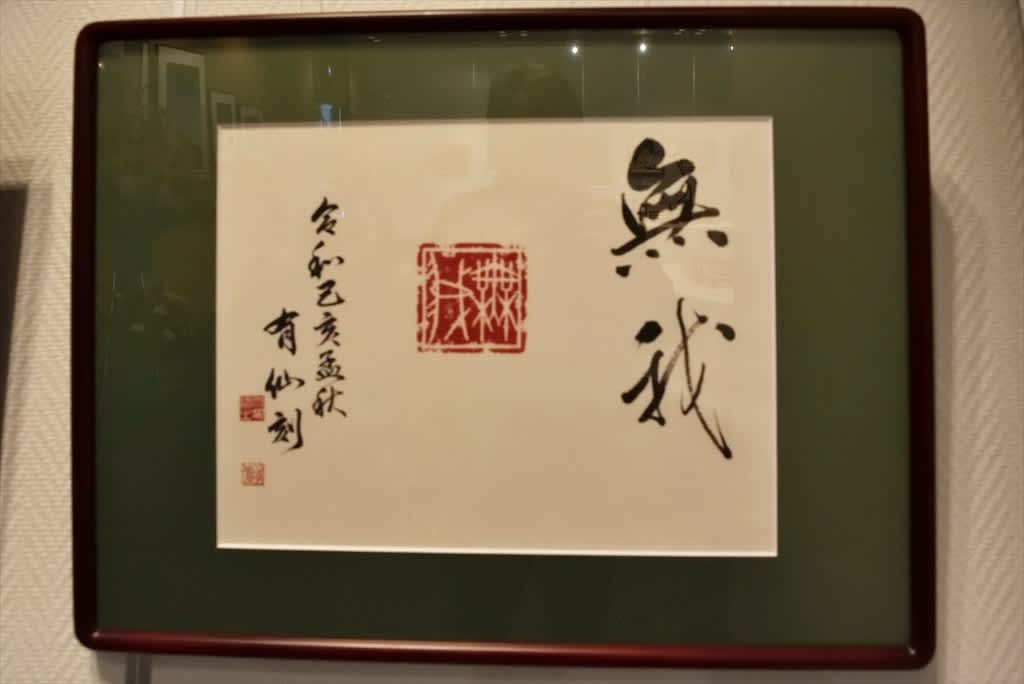 無我
無我
令和己亥孟秋
有仙刻